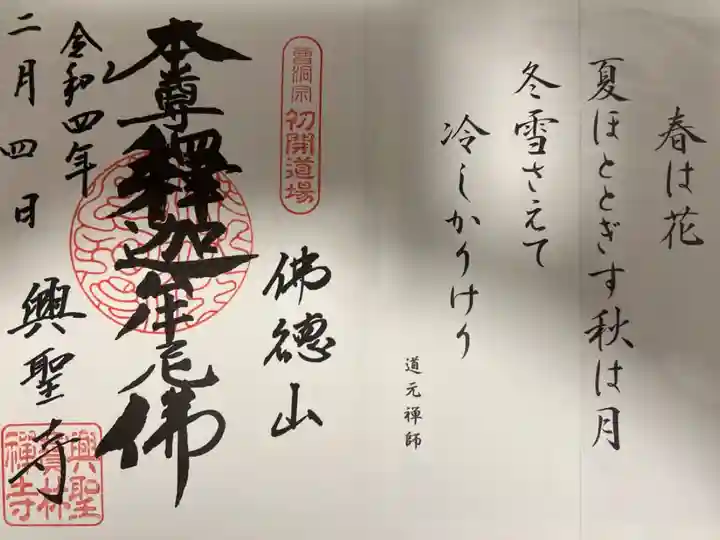 春は花
夏ほととぎす秋は月
冬雪さえて
冷しかりけり
道元禅師
曹洞宗 初開道場
佛德山
本尊釋迦牟尼佛
興聖寺
令和四年
二月四日
興聖
寶林
禪寺